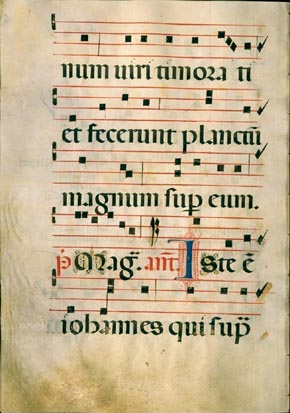 num uiri timora ti
et fecerunt planctū
magnum sup̄ eum.
ꝑ Mag̃. an̄t. Iste ē
iohannes qui sup̄